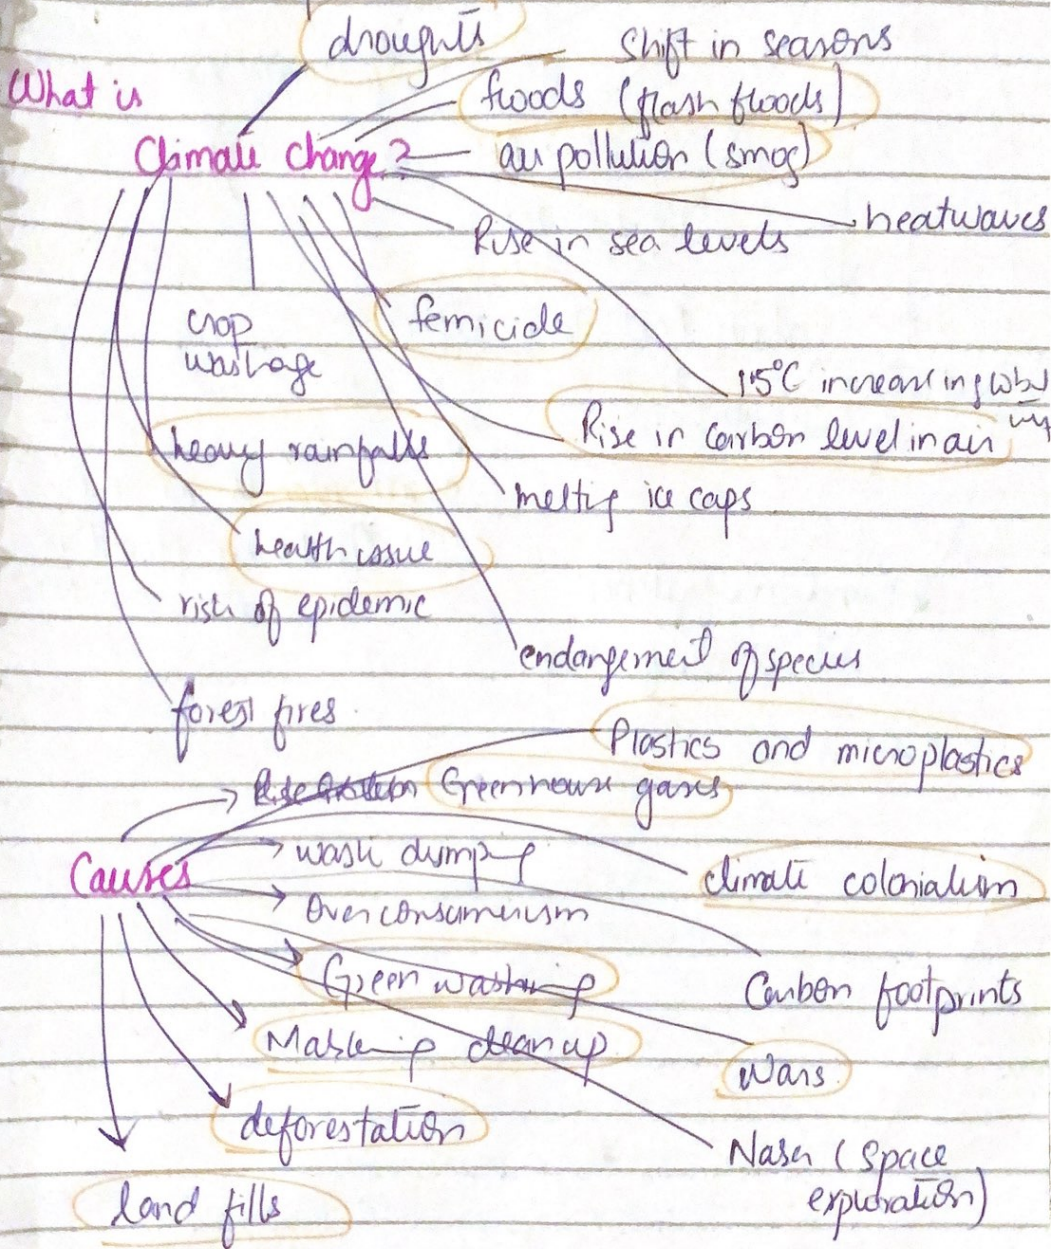 droughts
Shift in seasons
What is
floods (flash floods)
Climate Change?
air pollution (smog)
heatwaves
Rise in sea levels
crop
wastage
femicide
1.5°C increase in
Rise in Carbon level in air
heavy rainfalls
melting ice caps
health issue
risk of epidemic
endangement of species
forest fires
Plastics and microplastics
Greenhouse gases
waste dumping
Causes
climate colonialism
Over consumerism
Green washing
Carbon footprints
Masking clean up
Wars
deforestation
Nasa (Space
exploration)
land fills